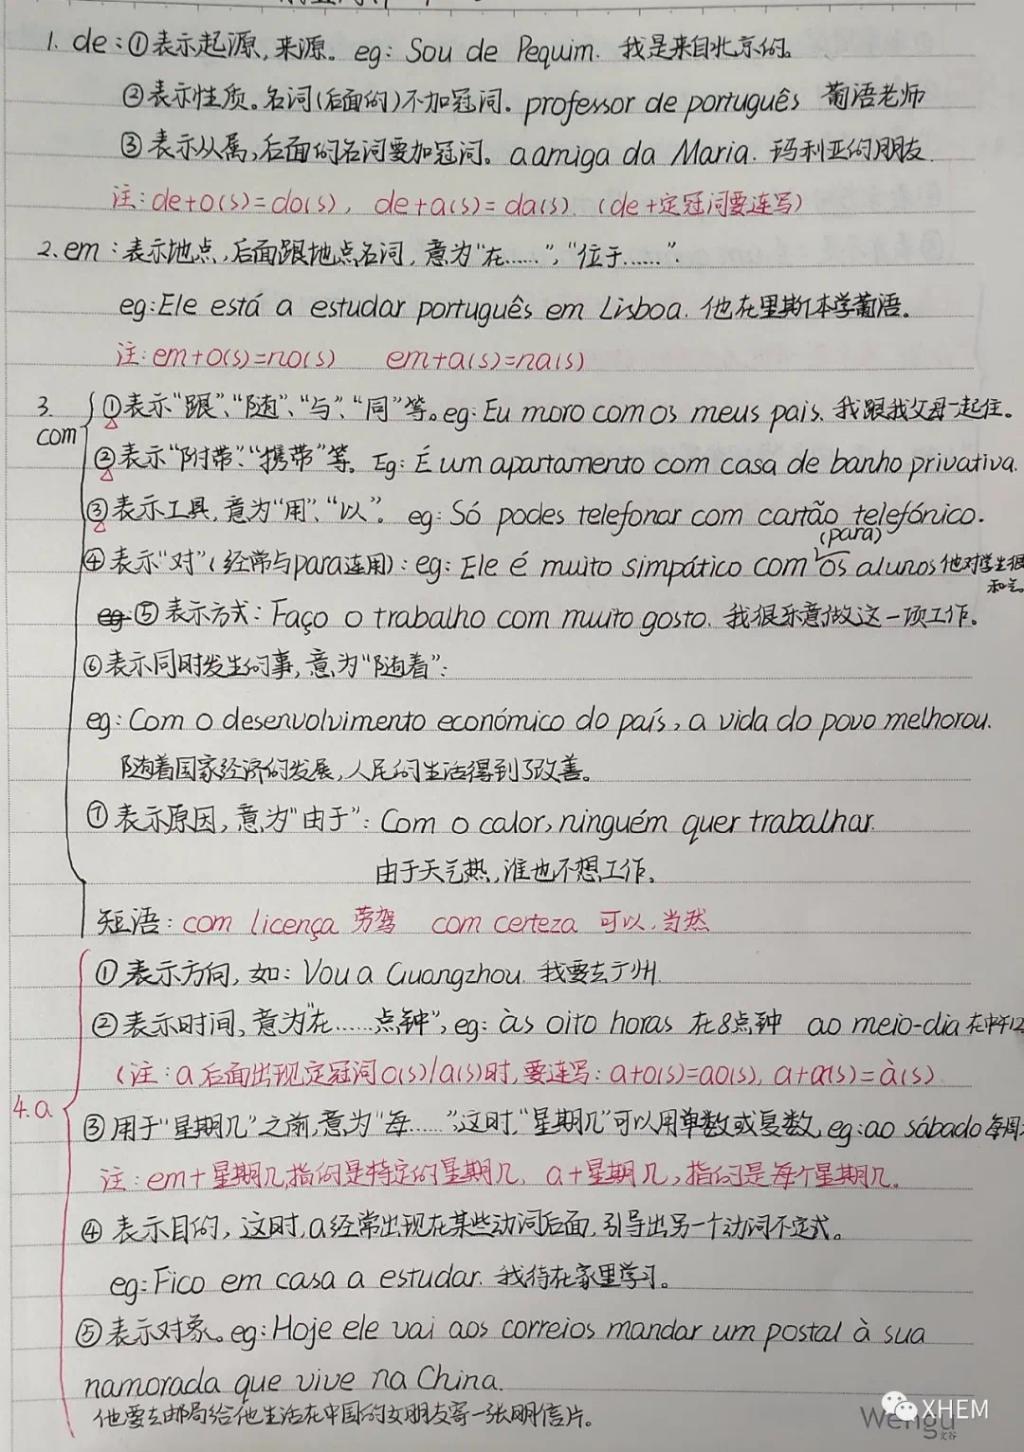 1. de：①表示起源，来源。eg：Sou de Pequim. 我是来自北京的。
②表示性质。名词（后面的）不加冠词。professor de português 葡语老师
③表示从属，后面的名词要加冠词。a amiga da Maria. 玛利亚的朋友.
注：de+o(s)=do(s)，de+a(s)=da(s).（de+定冠词要连写）
2. em：表示地点，后面跟地点名词，意为“在……”，“位于……”.
eg:Ele está a estudar português em Lisboa. 他在里斯本学葡语。
注：em+o(s)=no(s) em+a(s)=na(s)
3. com
①表示“跟”、“随”、“与”、“同”等。eg：Eu moro com os meus pais. 我跟我父母一起住。
②表示“附带”“携带”等。Eg：É um apartamento com casa de banho privativa.
③表示工具，意为“用”、“以”。eg：Só podes telefonar com cartão telefónico.
(para)
④表示“对”（经常与para连用）：eg：Ele é muito simpático com os alunos 他对学生很
和气
eg: ⑤表示方式：Faço o trabalho com muito gosto. 我很乐意做这一项工作。
⑥表示同时发生的事，意为“随着”：
eg：Com o desenvolvimento económico do país, a vida do povo melhorou.
随着国家经济的发展，人民的生活得到了改善。
⑦表示原因，意为“由于”：Com o calor, ninguém quer trabalhar.
由于天气热，谁也不想工作。
短语：com licença 劳驾 com certeza 可以，当然
4. a
①表示方向，如：Vou a Guangzhou. 我要去广州.
②表示时间，意为“在……点钟”，eg：às oito horas 在8点钟 ao meio-dia 在中午12
（注：a后面出现定冠词o(s)/a(s)时，要连写：a+o(s)=ao(s), a+a(s)=à(s)
③用于“星期几”之前，意为“每……”，这时，“星期几”可以用单数或复数，eg：ao sábado 每周
注：em+星期几，指的是特定的星期几，a+星期几，指的是每个星期几。
④表示目的，这时，a经常出现在某些动词后面，引导出另一个动词不定式。
eg：Fico em casa a estudar. 我待在家里学习。
⑤表示对象。eg：Hoje ele vai aos correios mandar um postal à sua
namorada que vive na China.
他要去邮局给他生活在中国的女朋友寄一张明信片。
Wengu
文谷
XHEM